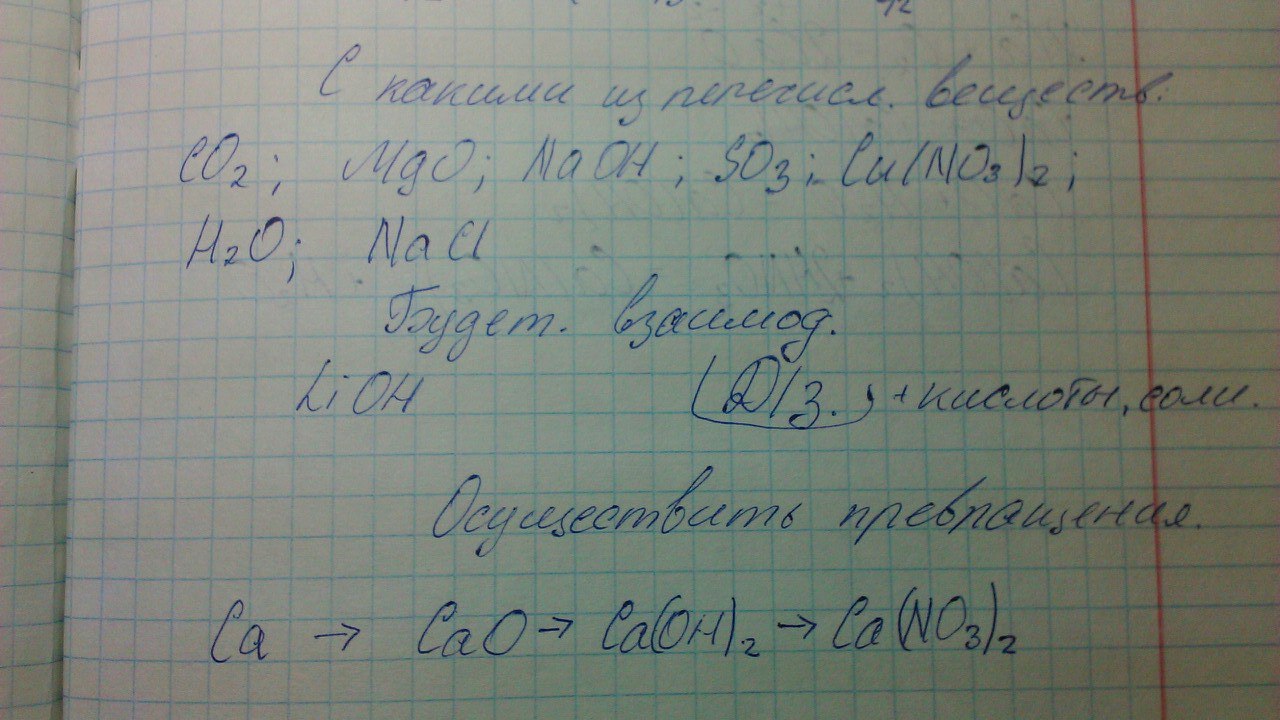 С какими из перечисл. веществ:
CO₂; MgO; NaOH; SO₃; Cu(NO₃)₂;
H₂O; NaCl
Будет. взаимод.
LiOH (Д/з.) + кислоты, соли.
Осуществить превращения.
Ca → CaO → Ca(OH)₂ → Ca(NO₃)₂